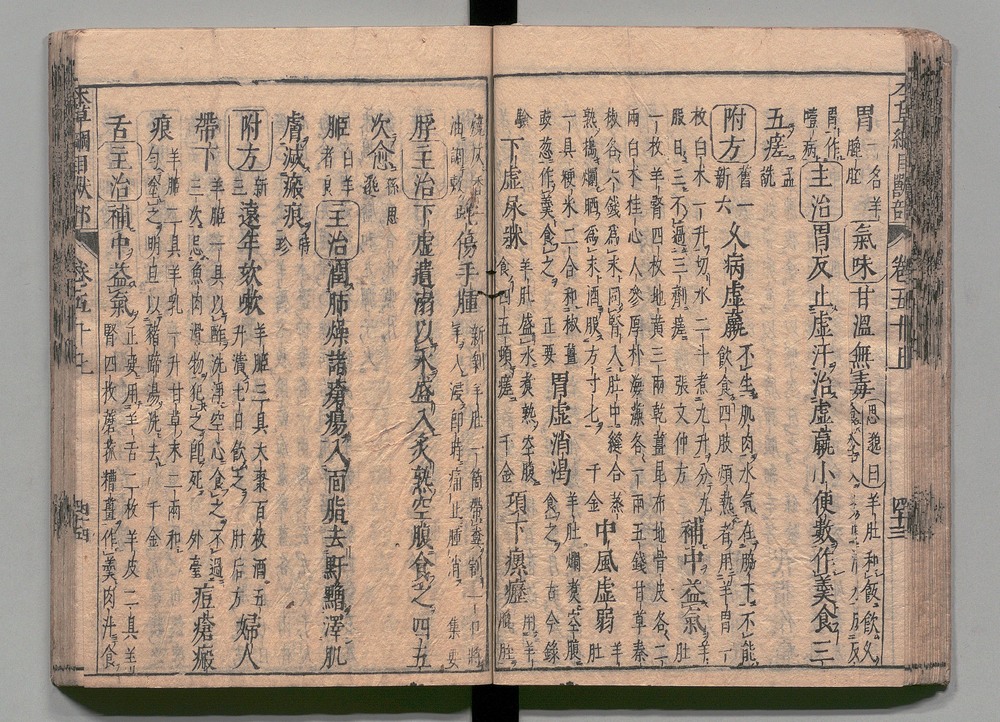 胃一名羊膍胵氣味甘溫無毒思邈曰羊肚和飯飲久
胃作噎病主治胃反止虛汗治虛羸小便數作羹食三
五瘥孟詵
附方舊一新六久病虛羸不生肌肉水氣在脇下不能飲食四肢煩熱者用羊胃一
枚白朮一升切水二斗煮九升分九服日三不過三劑瘥張文仲方補中益氣羊肚
一枚羊腎四枚地黃三兩乾薑昆布地骨皮各二
兩白朮桂心人參厚朴海藻各一兩五錢甘草秦
椒各六錢爲末同腎入肚中縫合蒸熟搗爛晒爲末酒服方寸匕千金中風虛弱羊肚
一具粳米二合和椒薑豉葱作羹食之正要胃虛消渴羊肚爛煮空腹食之古今錄
驗下虛尿牀羊肚盛水煮熟空腹食四五頓瘥千金項下瘰癧用羊
油調傷手腫集要
脬主治下虛遺溺以水盛入炙熟空腹食之四五
次愈孫思邈
胵白羊者良主治潤肺燥諸瘡瘍入面脂去䵟䵳澤肌
膚滅瘢痕時珍
附方新三遠年欬嗽羊胵三具大棗百枚酒五升漬七日飲之肘后方婦人
帶下羊胵一具以酢洗淨空心食之不過三次忌魚肉滑物犯之卽死外臺痘瘡瘢
痕羊胵二具羊乳一升甘草末二兩和勻塗之明旦以豬蹄湯洗去千金
舌主治補中益氣正要用羊舌二枚羊皮二具羊腎四枚蘑菰糟薑作羹肉汁食
卷五十